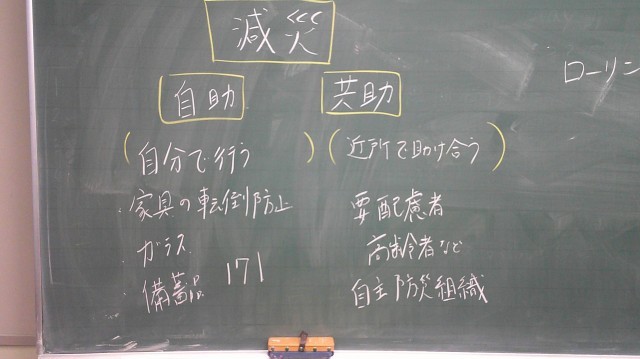 減災
ローリン
自助
共助
(自分で行う)
(近所で助け合う)
・家具の転倒防止
要配慮者
・ガラス
高齢者など
・備蓄品 171
自主防災組織